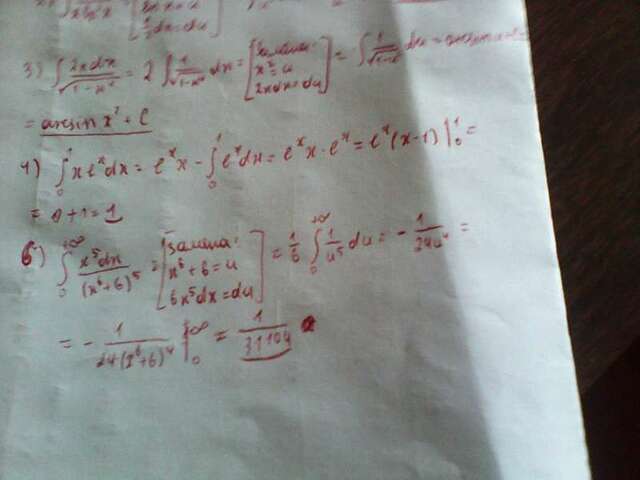 3) ∫ 2x dx / √(1-x⁴) = 2 ∫ 1/√(1-x⁴) dx = [замена: x² = u 2x dx = du] = ∫
= arcsin x² + C
4) ∫₀¹ x eˣ dx = eˣ x - ∫₀¹ eˣ dx = eˣ x - eˣ = eˣ (x-1) |₀¹ =
= 0 + 1 = 1
6) ∫₀^+∞ x⁵dx / (x⁶+6)⁵ = [замена: x⁶ + 6 = u 6x⁵dx = du] = 1/6 ∫₀^+∞ 1/u⁵ du = - 1/24u⁴ =
= - 1/24(x⁶+6)⁴ |₀^+∞ = 1/31104